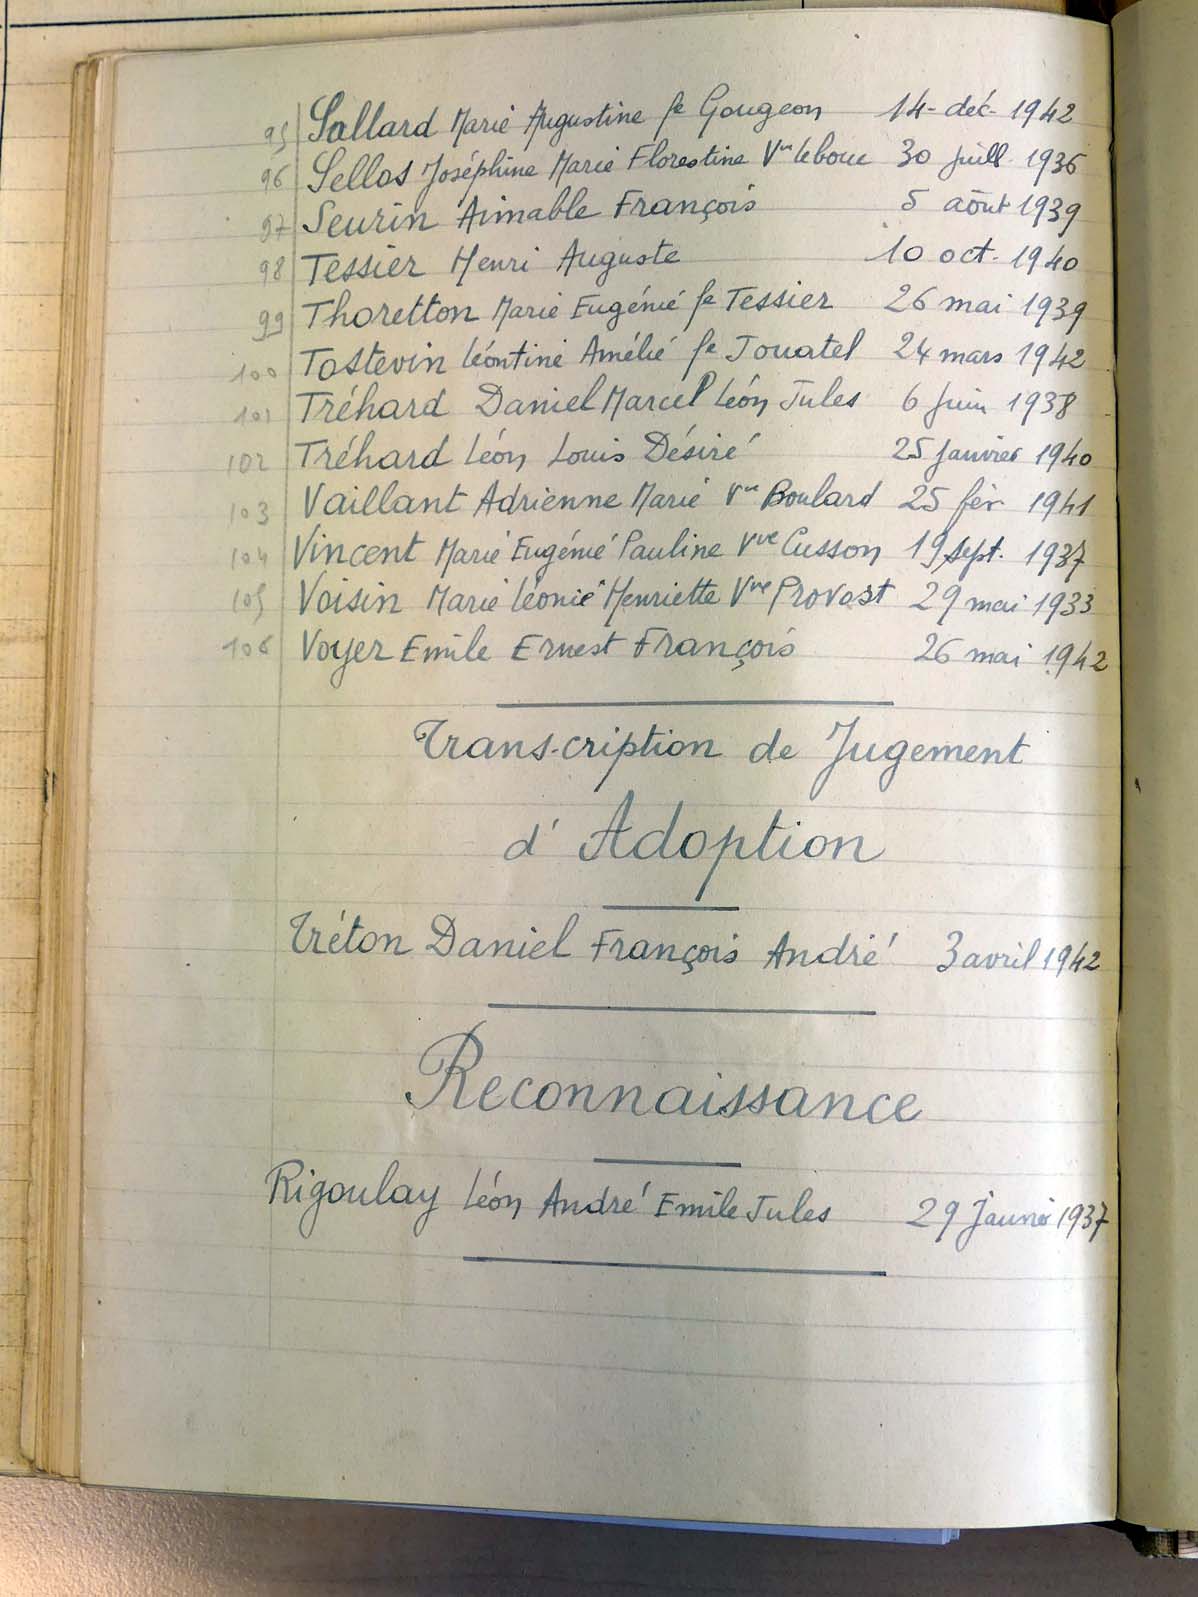 95 Sallard Marie Augustine fe Gougeon 14 déc. 1942
96 Sellos Joséphine Marie Florestine Vve Lebouc 30 juill. 1936
97 Seurin Aimable François 5 août 1939
98 Tessier Henri Auguste 10 oct. 1940
99 Thoretton Marie Eugénie fe Tessier 26 mai 1939
100 Tostevin Léontine Amélie fe Jouatel 24 mars 1942
101 Tréhard Daniel Marcel Léon Jules 6 juin 1938
102 Tréhard Léon Louis Désiré 25 janvier 1940
103 Vaillant Adrienne Marie Vve Boulard 25 fév 1941
104 Vincent Marie Eugénie Pauline Vve Cusson 19 sept. 1937
105 Voisin Marie Léonie Henriette Vve Provost 29 mai 1933
106 Voyer Emile Ernest François 26 mai 1942
Trans-cription de Jugement
d'Adoption
Tréton Daniel François André 3 avril 1942
Reconnaissance
Rigoulay Léon André Emile Jules 29 janvier 1937